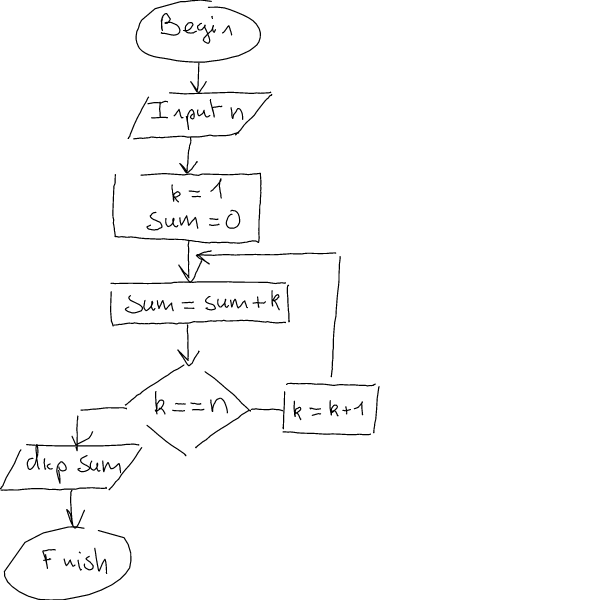 Begin
Input n
k = 1
Sum = 0
Sum = sum + k
k == n
k = k + 1
dkp sum
Finish